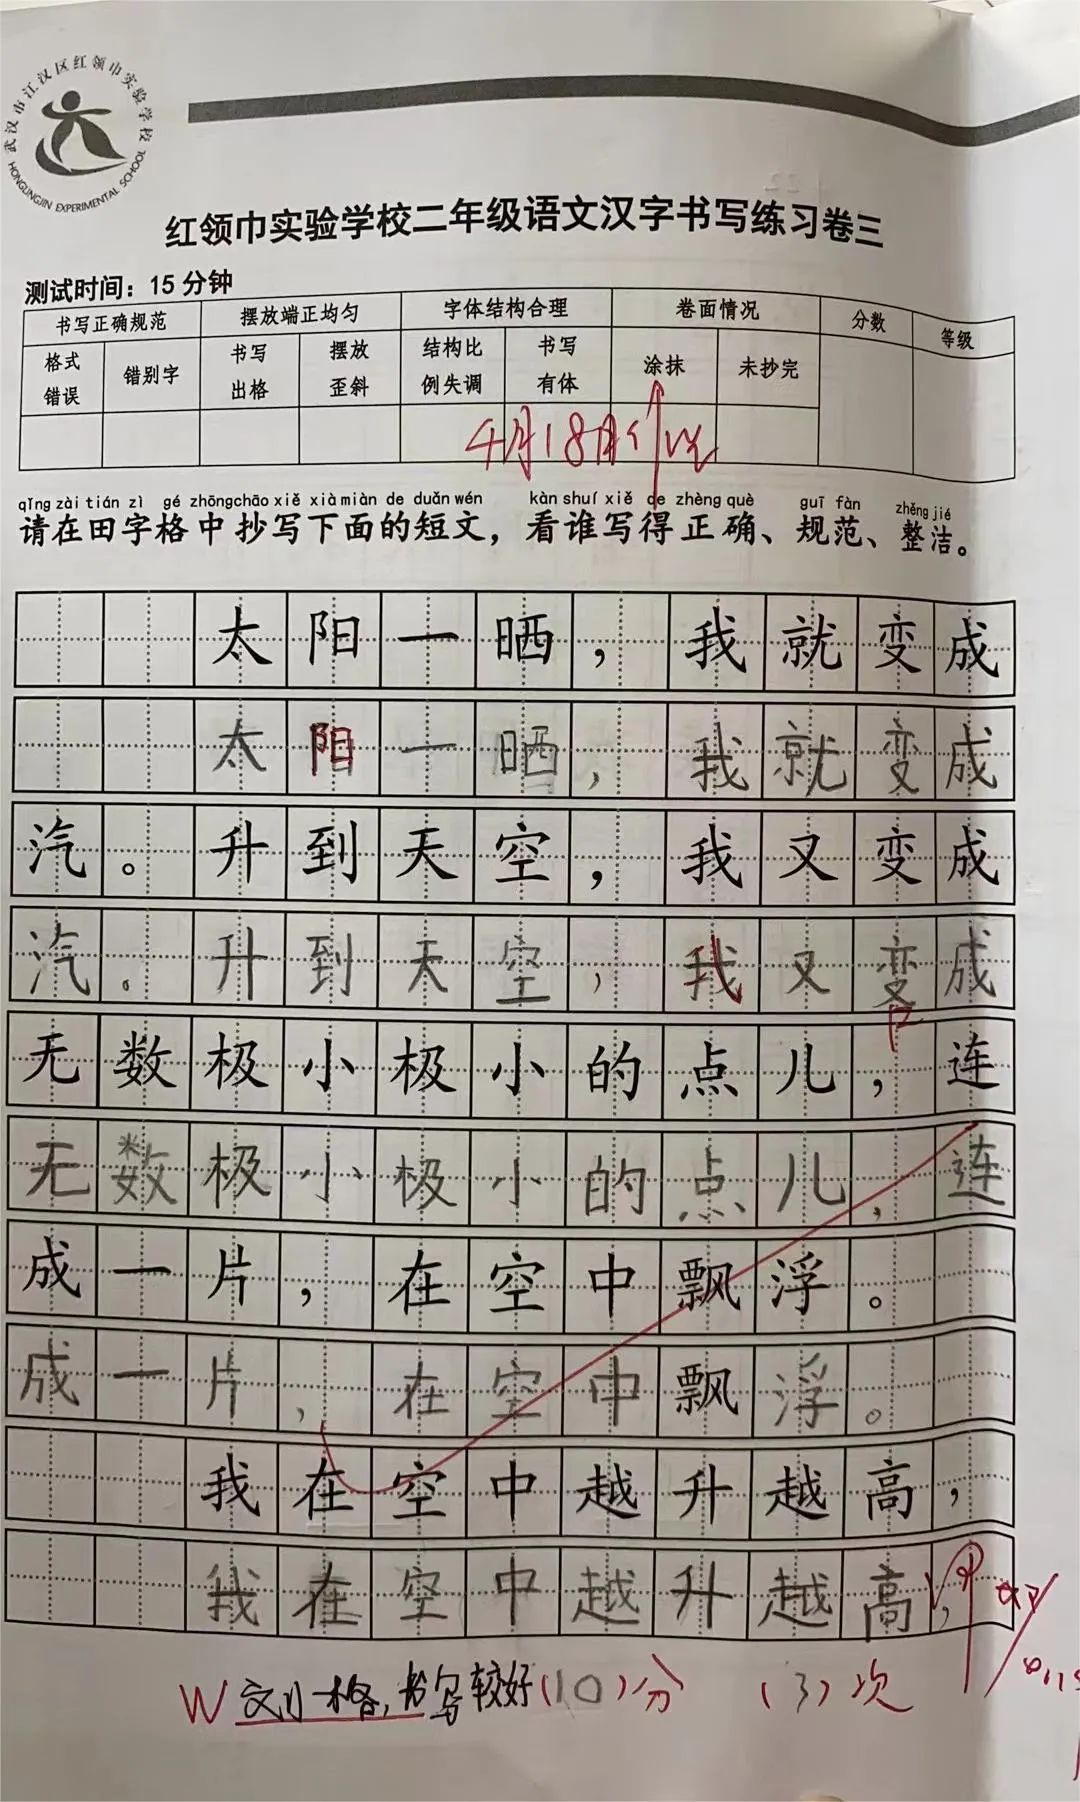 武汉市江汉区红领巾实验学校
HONGLINGJIN EXPERIMENTAL SCHOOL
红领巾实验学校二年级语文汉字书写练习卷三
测试时间：15分钟
书写正确规范 摆放端正均匀 字体结构合理 卷面情况 分数 等级
格式错误 错别字 书写出格 摆放歪斜 结构比例失调 书写有体 涂抹 未抄完
4月18日
qǐng zài tián zì gé zhōngchāo xiě xià miàn de duǎn wén kàn shuí xiě de zhèng què guī fàn zhěng jié
请在田字格中抄写下面的短文，看谁写得正确、规范、整洁。
太阳一晒，我就变成
太阳一晒，我就变成
汽。升到天空，我又变成
汽。升到天空，我又变成
无数极小极小的点儿，连
无数极小极小的点儿，连
成一片，在空中飘浮。
成一片，在空中飘浮。
我在空中越升越高，
我在空中越升越高，
书写较好(10)分 (3)次